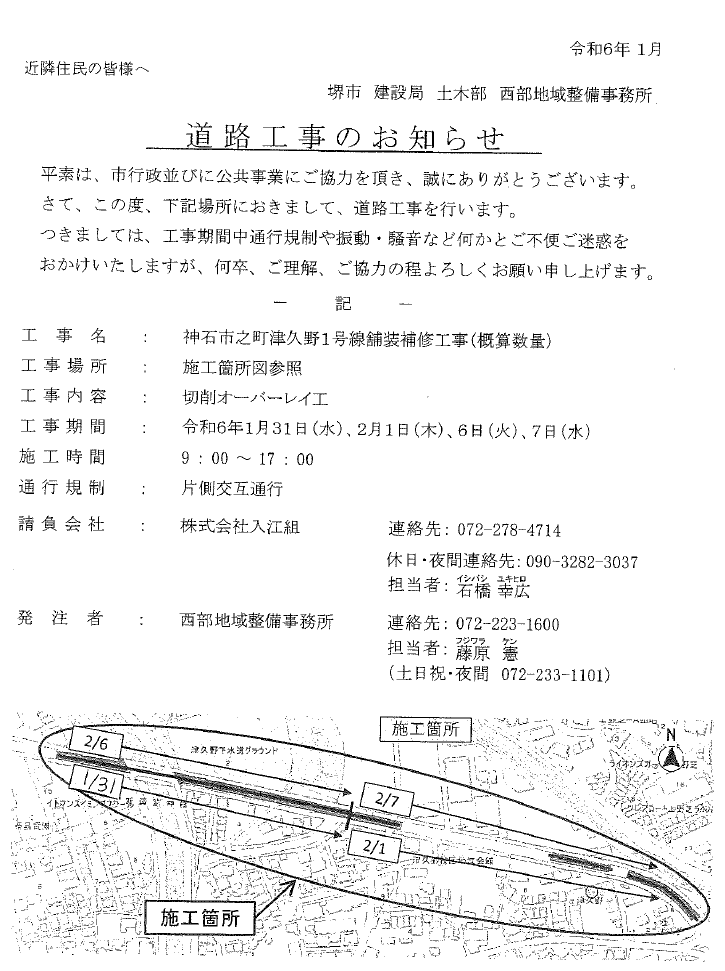 令和6年 1月
近隣住民の皆様へ
堺市 建設局 土木部 西部地域整備事務所
道路工事のお知らせ
平素は、市行政並びに公共事業にご協力を頂き、誠にありがとうございます。
さて、この度、下記場所におきまして、道路工事を行います。
つきましては、工事期間中通行規制や振動・騒音など何かとご不便ご迷惑を
おかけいたしますが、何卒、ご理解、ご協力の程よろしくお願い申し上げます。
― 記 ―
工事名 : 神石市之町津久野1号線舗装補修工事(概算数量)
工事場所 : 施工箇所図参照
工事内容 : 切削オーバーレイ工
工事期間 : 令和6年1月31日(水)、2月1日(木)、6日(火)、7日(水)
施工時間 9:00 ~ 17:00
通行規制 : 片側交互通行
請負会社 : 株式会社入江組 連絡先: 072-278-4714
休日・夜間連絡先: 090-3282-3037
イシバシ ユキヒロ
担当者: 石橋 幸広
発注者 : 西部地域整備事務所 連絡先: 072-223-1600
フジワラ ケン
担当者: 藤原 憲
(土日祝・夜間 072-233-1101)
施工箇所
N
2/6
津久野下水道グラウンド
1/31
2/7
2/1
津久野
施工箇所